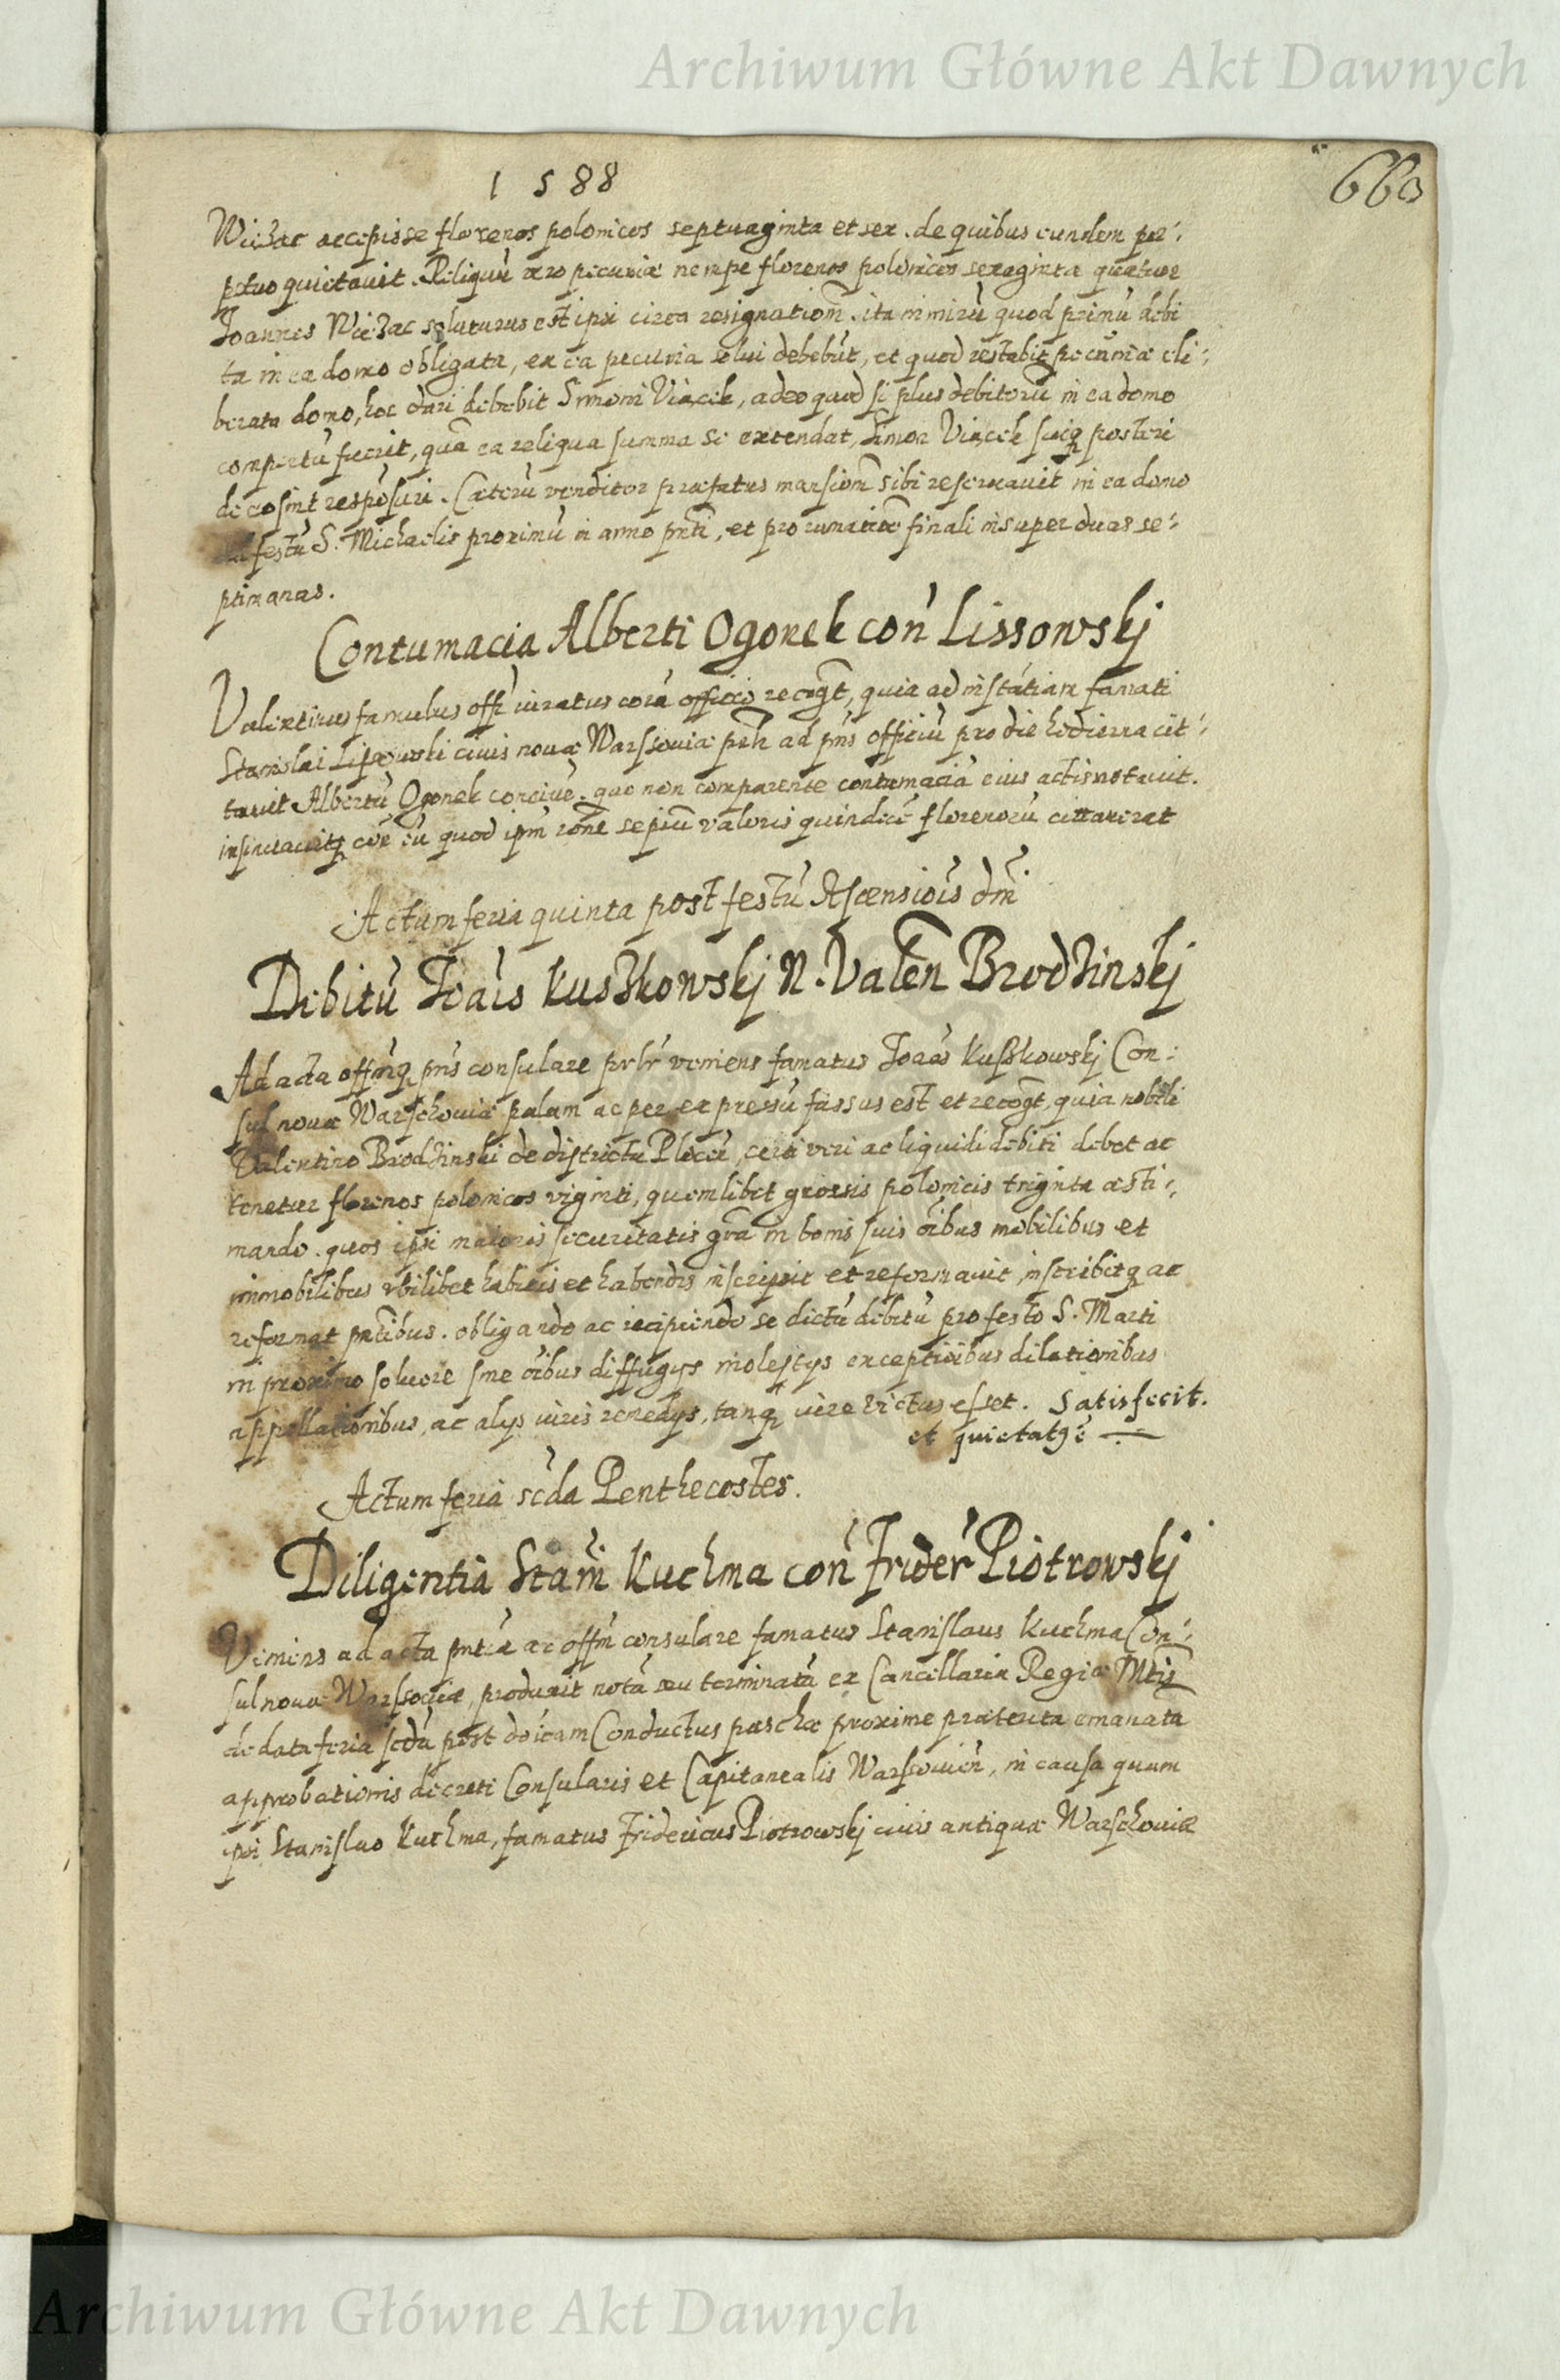 Archiwum Główne Akt Dawnych
660
1588
Wiezac accepisse florenos polonicos septuaginta et sex. de quibus eundem per:
petuo quietavit. Reliquũ vero pecuniæ nempe florenos polonicos sexaginta quatuor
Joannes Wiezac soluturus est ipsi circa resignationẽ. ita nimirũ quod primũ debi
ta in ea domo obligata, ex ea pecunia solui debebũt, et quod restabit pecuniæ eli:
berata domo, hoc dari debebit Simoni Viącek, adeo quod si plus debitorũ in ea domo
compertũ fuerit, quã ea reliqua summa se extendat, Simon Viącek suiq posteri
de eo sint respõsuri. Cæterũ venditor præfatus mansionẽ sibi reservavit in ea domo
ad festũ S. Michaelis proximũ in anno pñti, et pro finali insuper duas se:
ptimanas.
Contumacia Alberti Ogonek coñ Lissowskj
Valentinus famulus offi iuratus corã officio recogt, quia ad instãtiam famati
Stanislai Lissowski civis novæ Warssoviæ peñ ad pñs officiũ pro die hodierna cit:
tavit Albertũ Ogonek concivẽ. quo non comparente contumaciã eius actis notavit.
insinuavitq eũ quod ipm rõne sepiũ valoris quindecẽ florenorũ cittaverat
Actum feria quinta post festũ Ascensiõis dm̃
Debitũ Joãis Kuszkowskj N. Valeñ Brodzinskj
Ad acta offmq pñs consulare prlr veniens famatus Joães Kuszkowskj Con:
sul novæ Warschoviæ palam ac per expressũ fassus est et recogt, quia nobili
Valentino Brodzinski de districtu Plocẽ, certi veri ac liquidi debiti debet ac
tenetur florenos polonicos viginti, quemlibet grossis polonicis triginta æsti:
mando. quos ipsi maioris securitatis grã in bonis suis õibus mobilibus et
immobilibus vbilibet habitis et habendis inscripsit et reformavit, inscribitq ac
reformat pñtibus. obligando ac recipiendo se dictũ debitũ pro festo S. Marti
ni proximo soluere sine õibus diffugijs molestijs exceptiõibus dilationibus
appellationibus, ac alijs iuris remedijs, tanq iure victus esset. Satisfecit.
et quietatq ẽ
Actum feria scda Penthecostes.
Diligentia Stañi Kuchma coñ Frider Piotrowskj
Veniens ad acta pñtia ac offm consulare famatus Stanislaus Kuchma Con:
sul novæ Warssoviæ, produxit notã seu terminatã ex Cancellaria Regiæ Mtis
de data feria scda post dõicam Conductus paschæ proxime præterita emanata
approbationis decreti Consularis et Capitanealis Warssovieñ, in causa quam
ipsi Stanislao Kuchma, famatus Fridericus Piotrowskj civis antiquæ Warschoviæ
Archiwum Główne Akt Dawnych